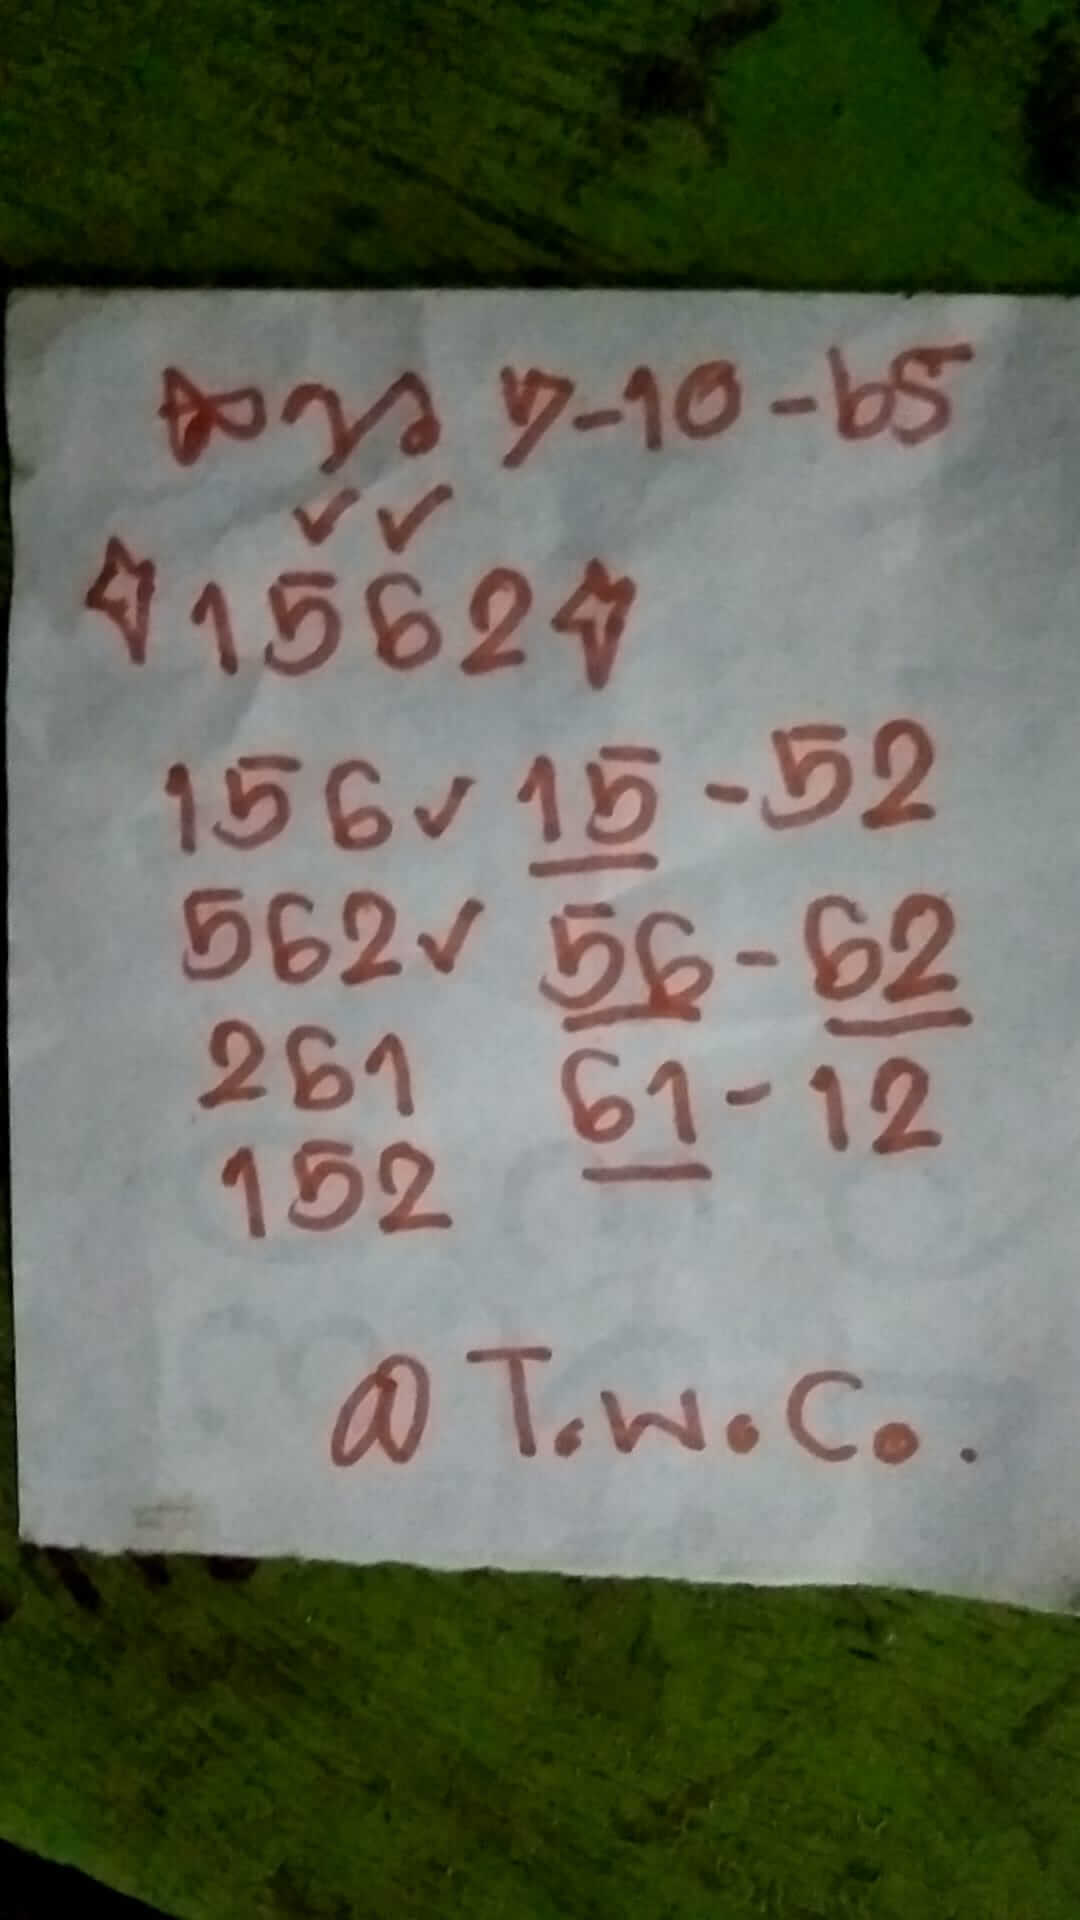 7-10-65
1562
156✓ 15-52
562✓ 56-62
261 61-12
152
@T.W.C..